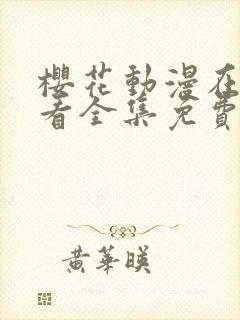 櫻花動漫在
看全集免費
黃華暎